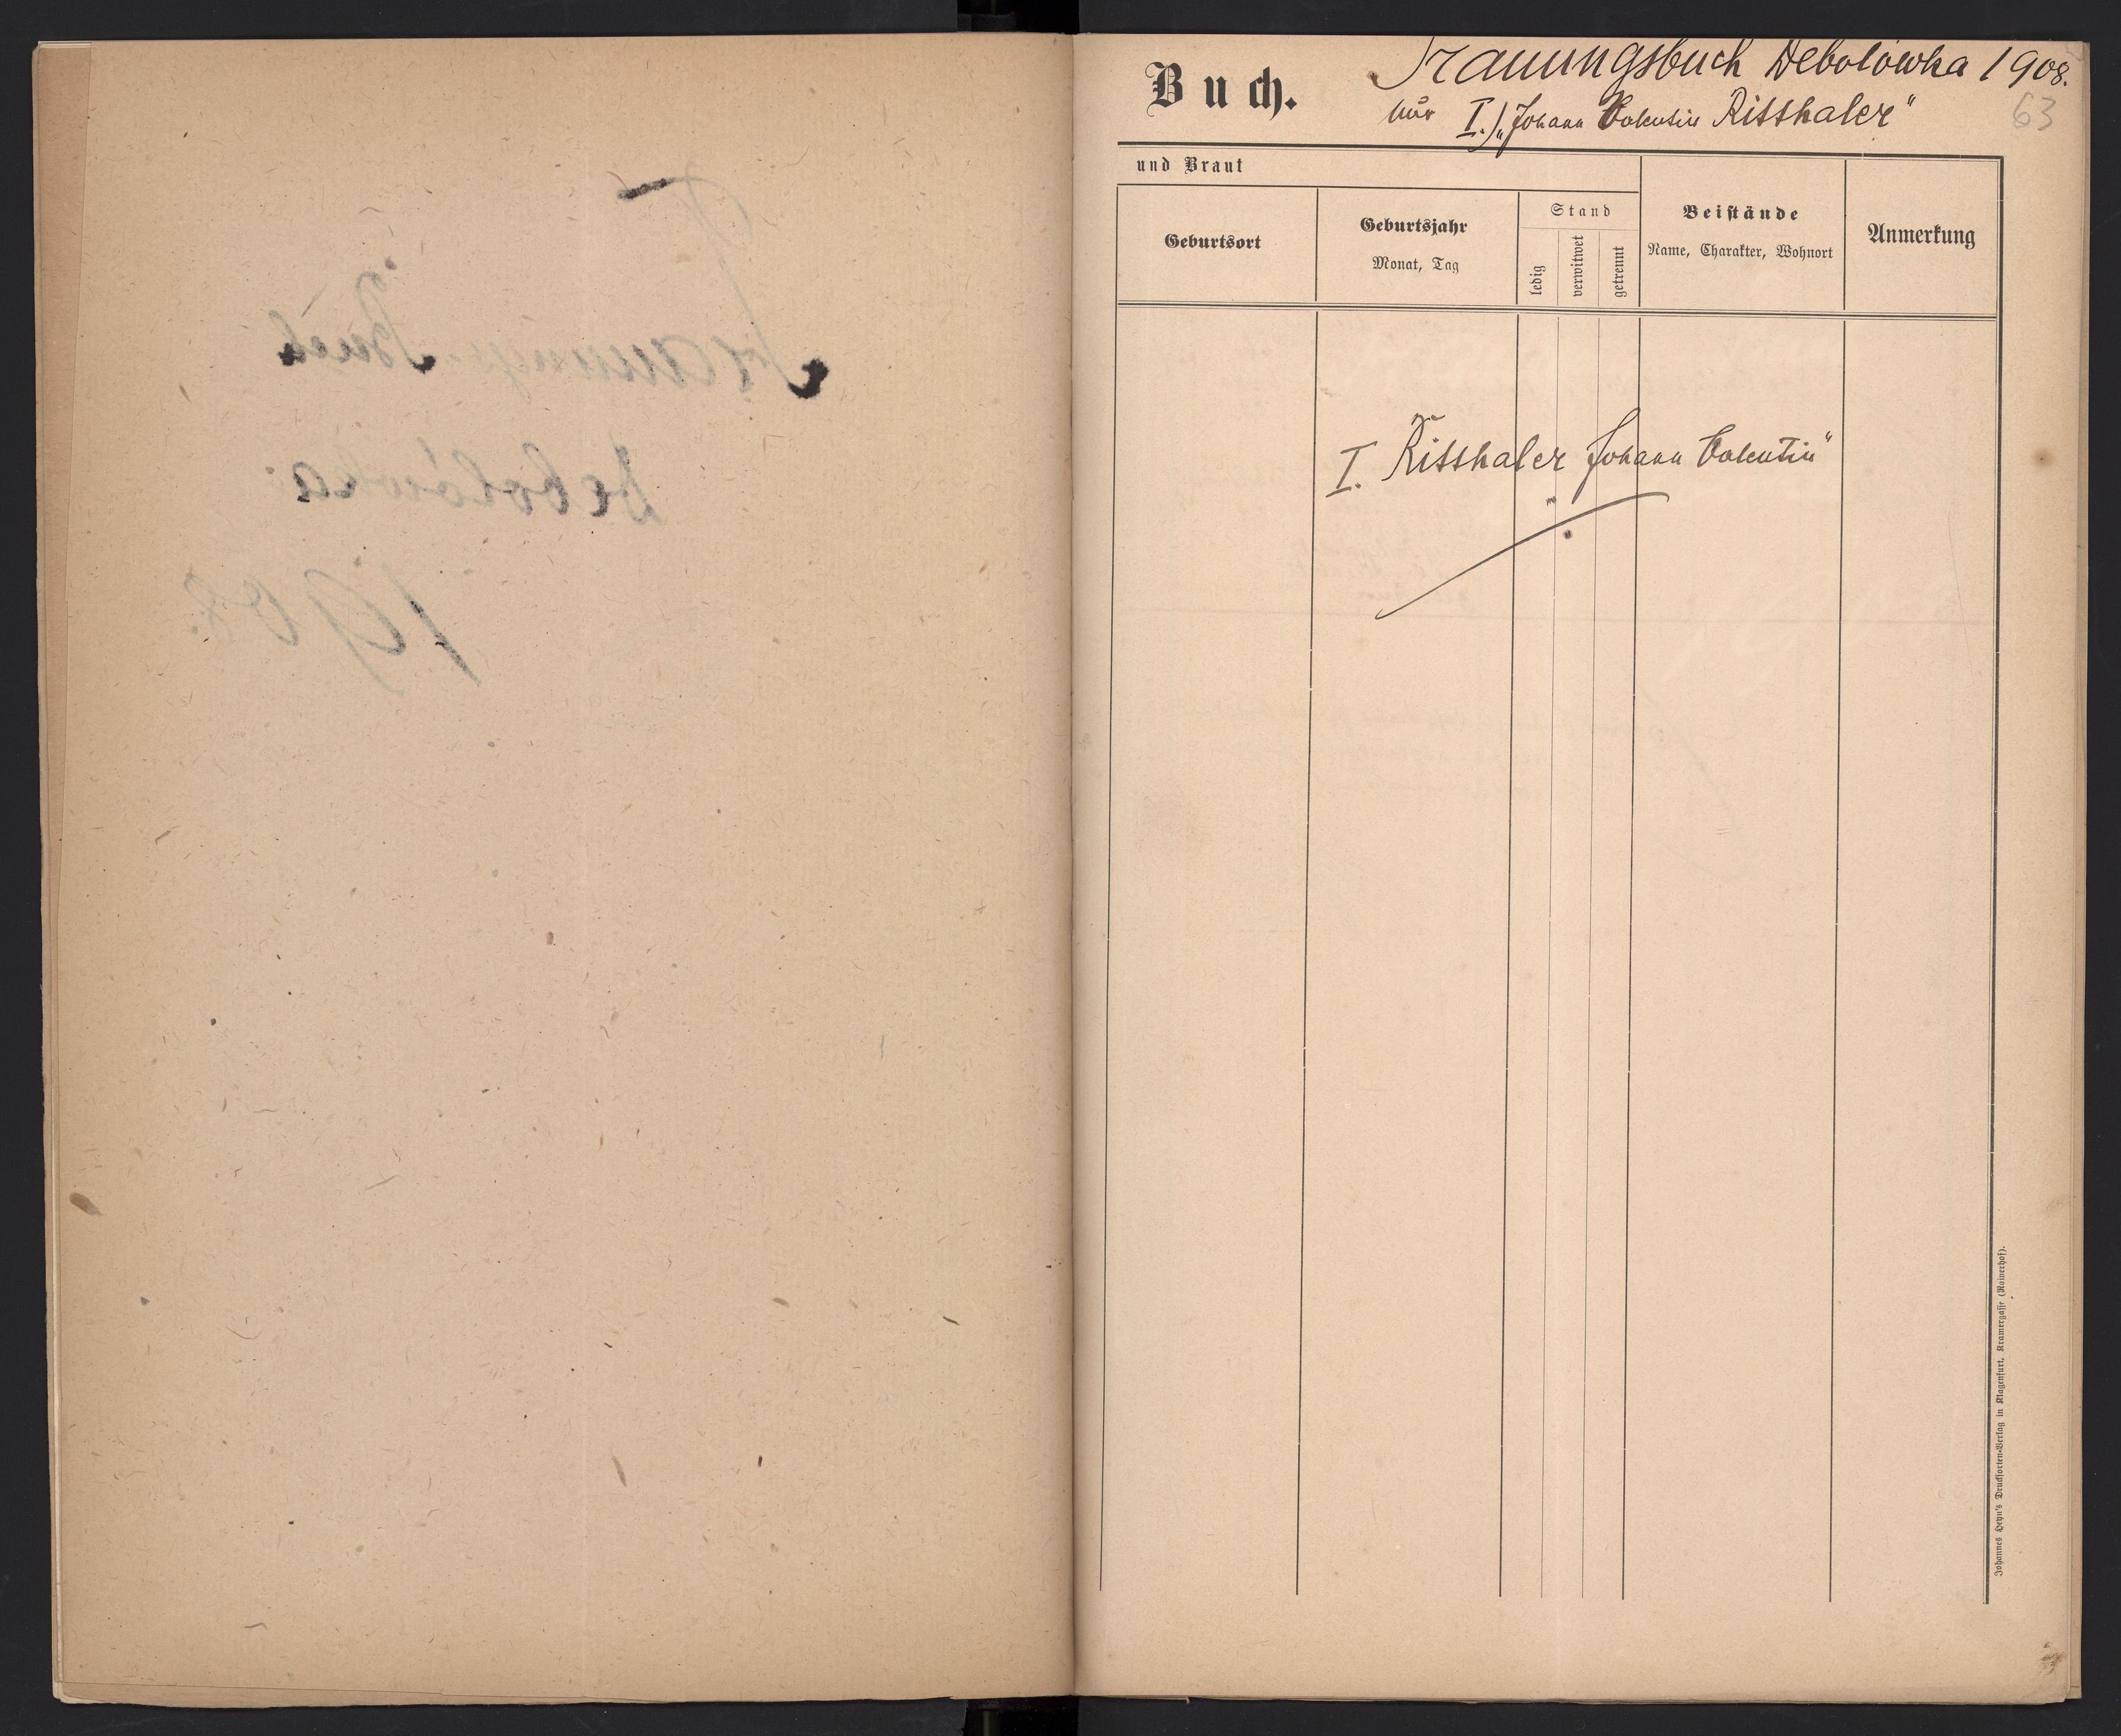 Trauungs-Buch
Debolówka
1908.
Buch.
Trauungsbuch Debolówka 1908.
nur I.) „Johann Valentin Risshaler"
63
und Braut
Geburtsort
Geburtsjahr
Monat, Tag
Stand
ledig
verwitwet
getrennt
Beistände
Name, Charakter, Wohnort
Anmerkung
I. Risshaler Johann Valentin"
Johannes Heyn's Drucksorten-Verlag in Klagenfurt, Kramergasse (Rainerhof).